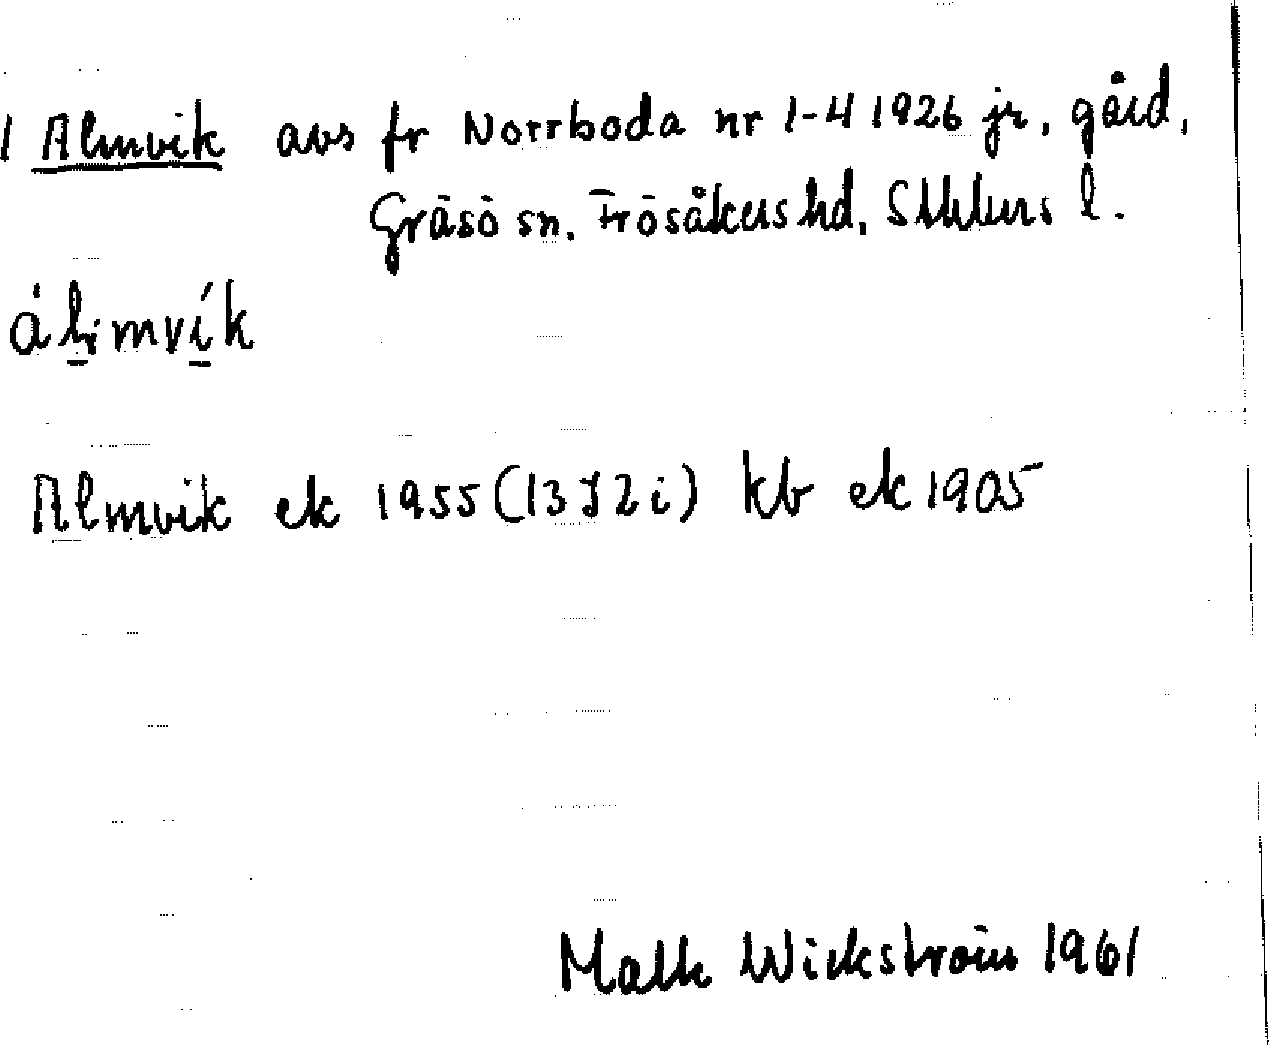 1 Almvik avs fr Norrboda nr 1-4 1926 jr, gård,
Gräsö sn. Frösåkers hd, Sthlms l.
Almvik ek 1955 (13 J 2 i) kb ek 1905
Wickström 1961